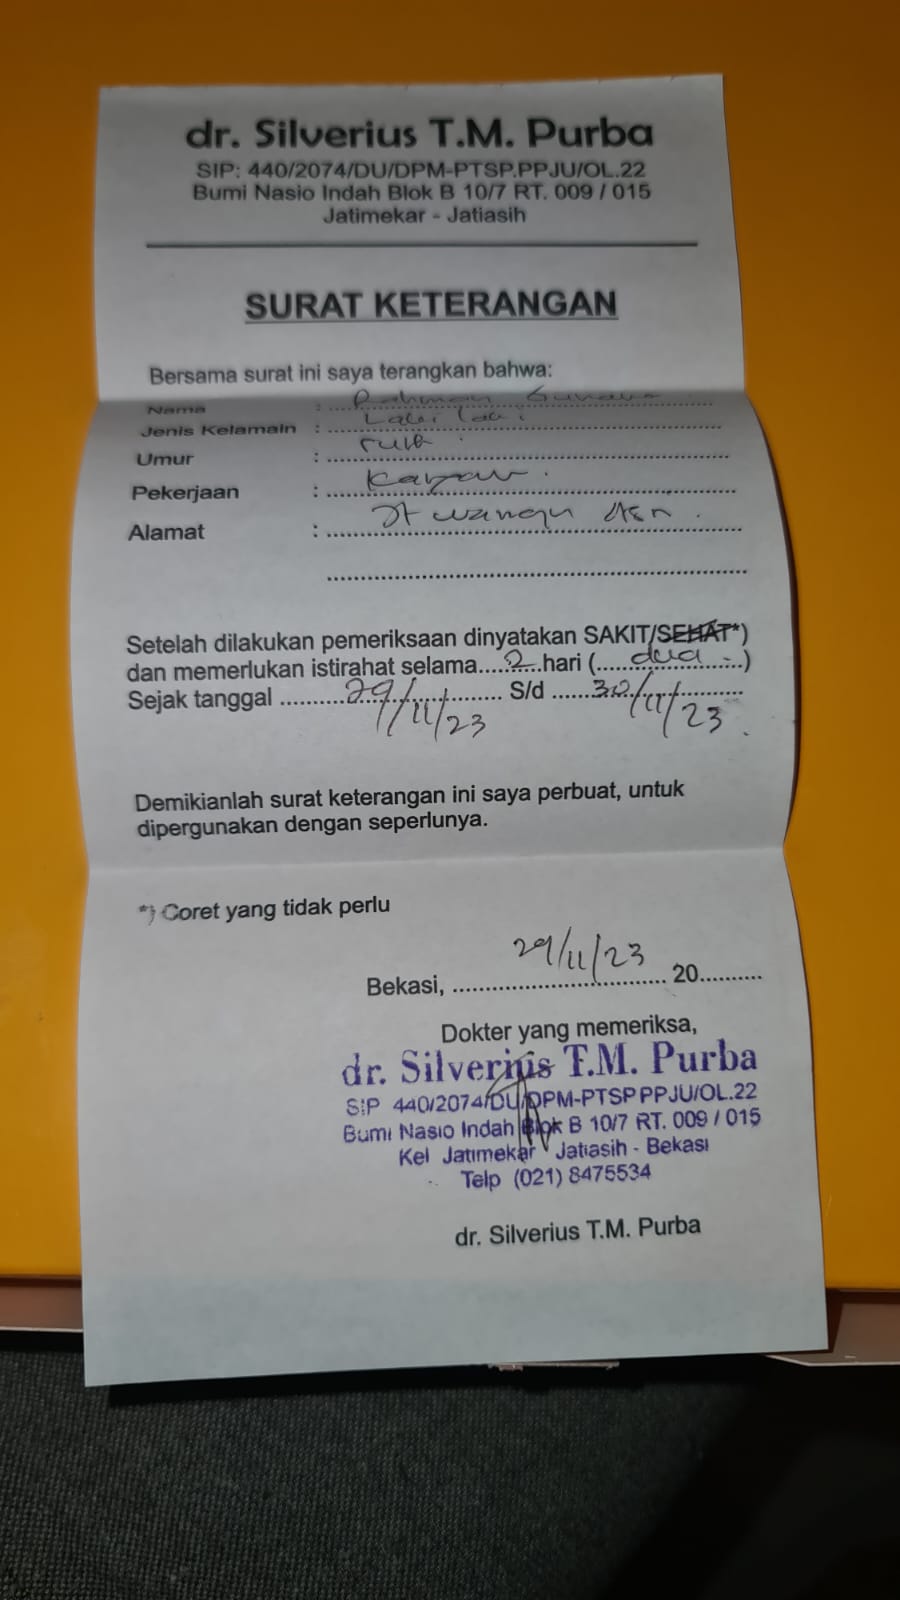 dr. Silverius T.M. Purba
SIP: 440/2074/DU/DPM-PTSP.PPJU/OL.22
Bumi Nasio Indah Blok B 10/7 RT. 009 / 015
Jatimekar - Jatiasih
SURAT KETERANGAN
Bersama surat ini saya terangkan bahwa:
Nama : Rahman
Jenis Kelamain : Laki laki
Umur :
Pekerjaan :
Alamat :
Setelah dilakukan pemeriksaan dinyatakan SAKIT/SEHAT*)
dan memerlukan istirahat selama....2..hari (......dua......)
Sejak tanggal ..........29/11/23.......... S/d ......30/11/23..........
Demikianlah surat keterangan ini saya perbuat, untuk
dipergunakan dengan seperlunya.
*) Coret yang tidak perlu
29/11/23
Bekasi, .................................. 20..........
Dokter yang memeriksa,
dr. Silverius T.M. Purba
SIP 440/2074/DU/DPM-PTSP PPJU/OL.22
Bumi Nasio Indah Blok B 10/7 RT. 009 / 015
Kel Jatimekar Jatiasih - Bekasi
Telp (021) 8475534
dr. Silverius T.M. Purba